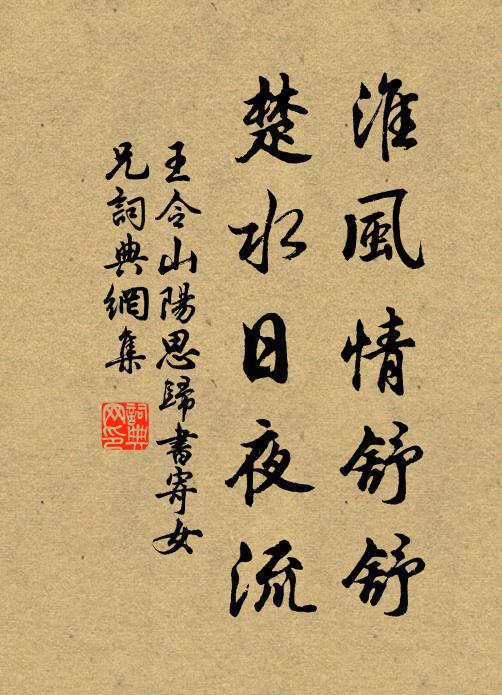 淮風情舒舒
楚水日夜流
王令山陽思歸書寄女
兄詞典網集
詞典
网印